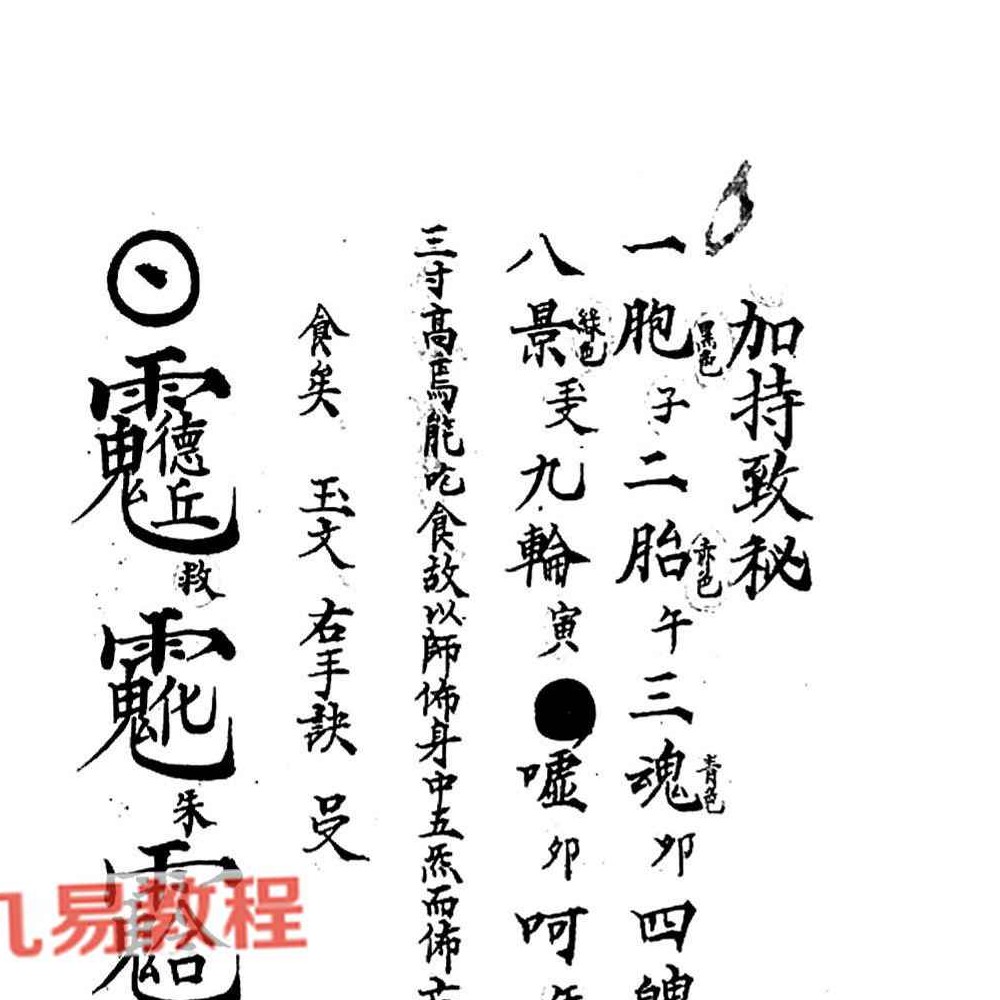 加持致秘
一胞黑色子二胎赤色午三魂青色卯四魄
八景綠色九輪寅噓卯呵午
三寸高焉能吃食故以師佈身中五炁而佈
食矣 玉文 右手訣
德丘救化朱
易教程